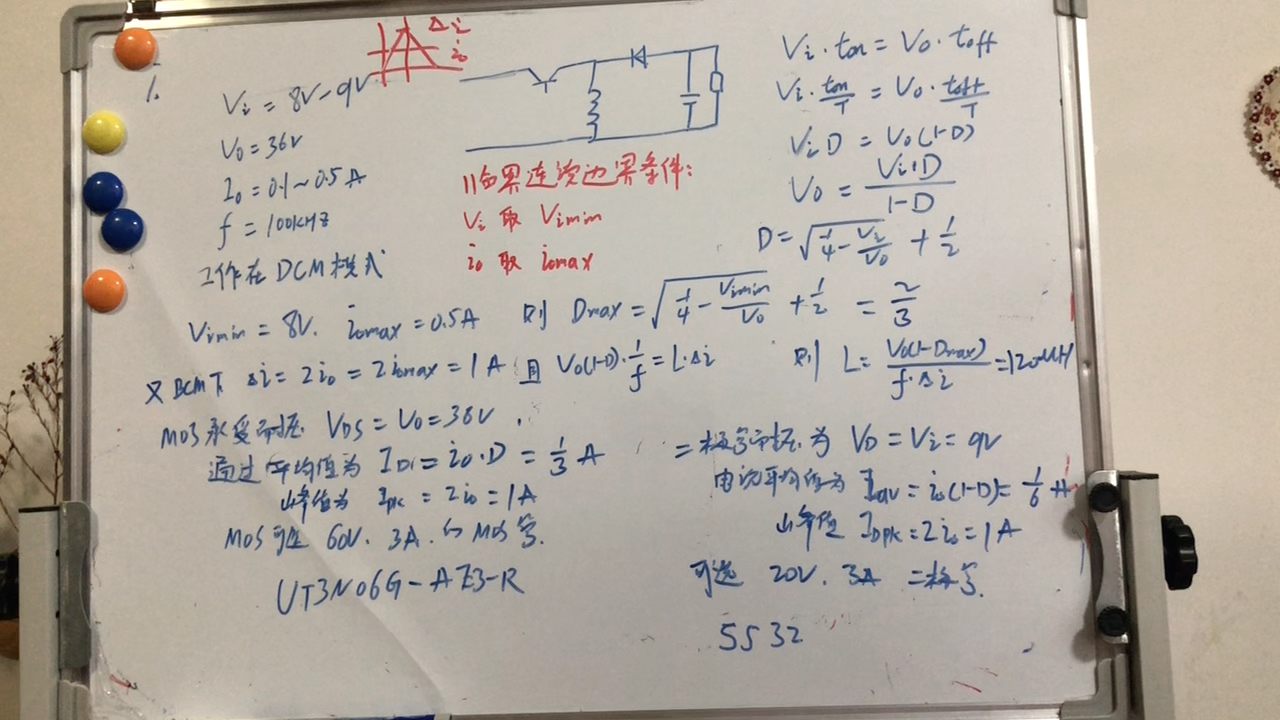 1.
Vi = 8V-9V
Vo = 36V
Io = 0.1~0.5A
f = 100KHz
工作在DCM模式
Δi
io
11临界连续边界条件:
Vi 取 Vimin
io 取 iomax
Vi·ton = Vo·toff
Vi·ton/T = Vo·toff/T
ViD = Vo(1-D)
Vo = Vi·D/1-D
D = √1/4-Vi/Vo + 1/2
Vimin = 8V. iomax = 0.5A 则 Dmax = √1/4-Vimin/Vo + 1/2 = 2/3
又BCM下 Δi = 2io = 2iomax = 1A 且 Vo(1-D)·1/f = L·Δi 则 L = Vo(1-Dmax)/f·Δi = 120uH
MOS承受耐压 VDS = Vo = 36V.
通过平均值为 = io·D = 1/3 A
峰值为 Ipk = 2io = 1A
MOS可选 60V. 3A. 的MOS管.
UT3N06G-AE3-R
二极管耐压为 VD = Vi = 9V
电流平均值为 = io(1-D) = 1/6 A
峰值 IDpk = 2io = 1A
可选 20V. 3A 二极管.
SS32